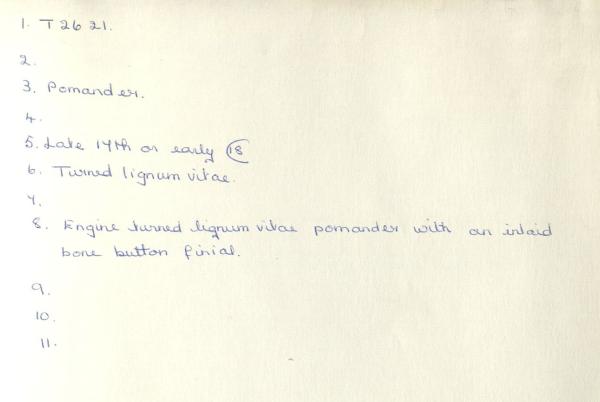 1. T 26 21.
2.
3. Pomander.
4.
5. Late 17th or early 18
6. Turned lignum vitae.
7.
8. Engine turned lignum vitae pomander with an inlaid
bone button finial.
9.
10.
11.